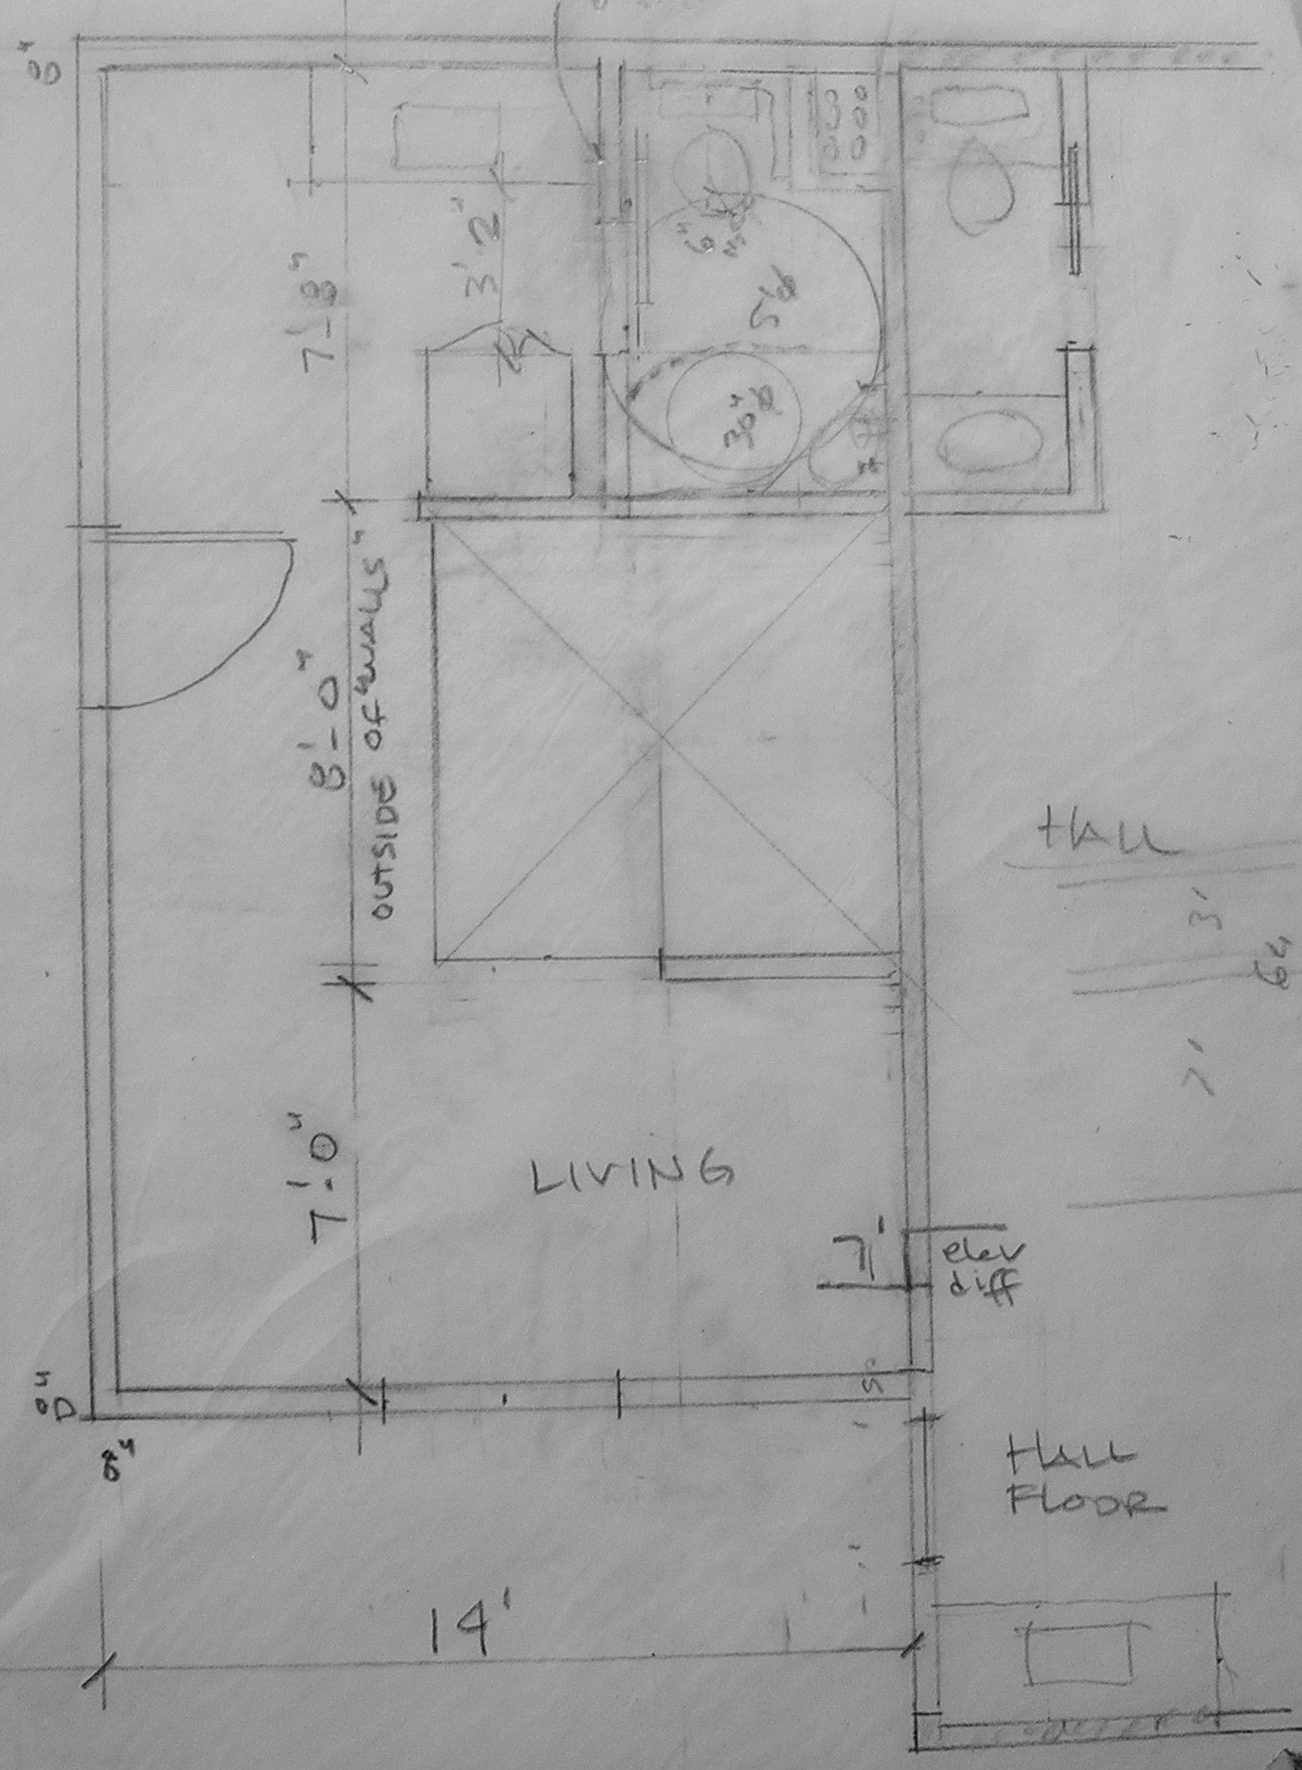 8"
7'-8"
3'-2"
6"
5'ø
30"ø
8'-0"
OUTSIDE OF "WALLS"
HALL
3'
7'
7'-0"
LIVING
7'
elev
diff
8"
8"
HALL
FLOOR
14'